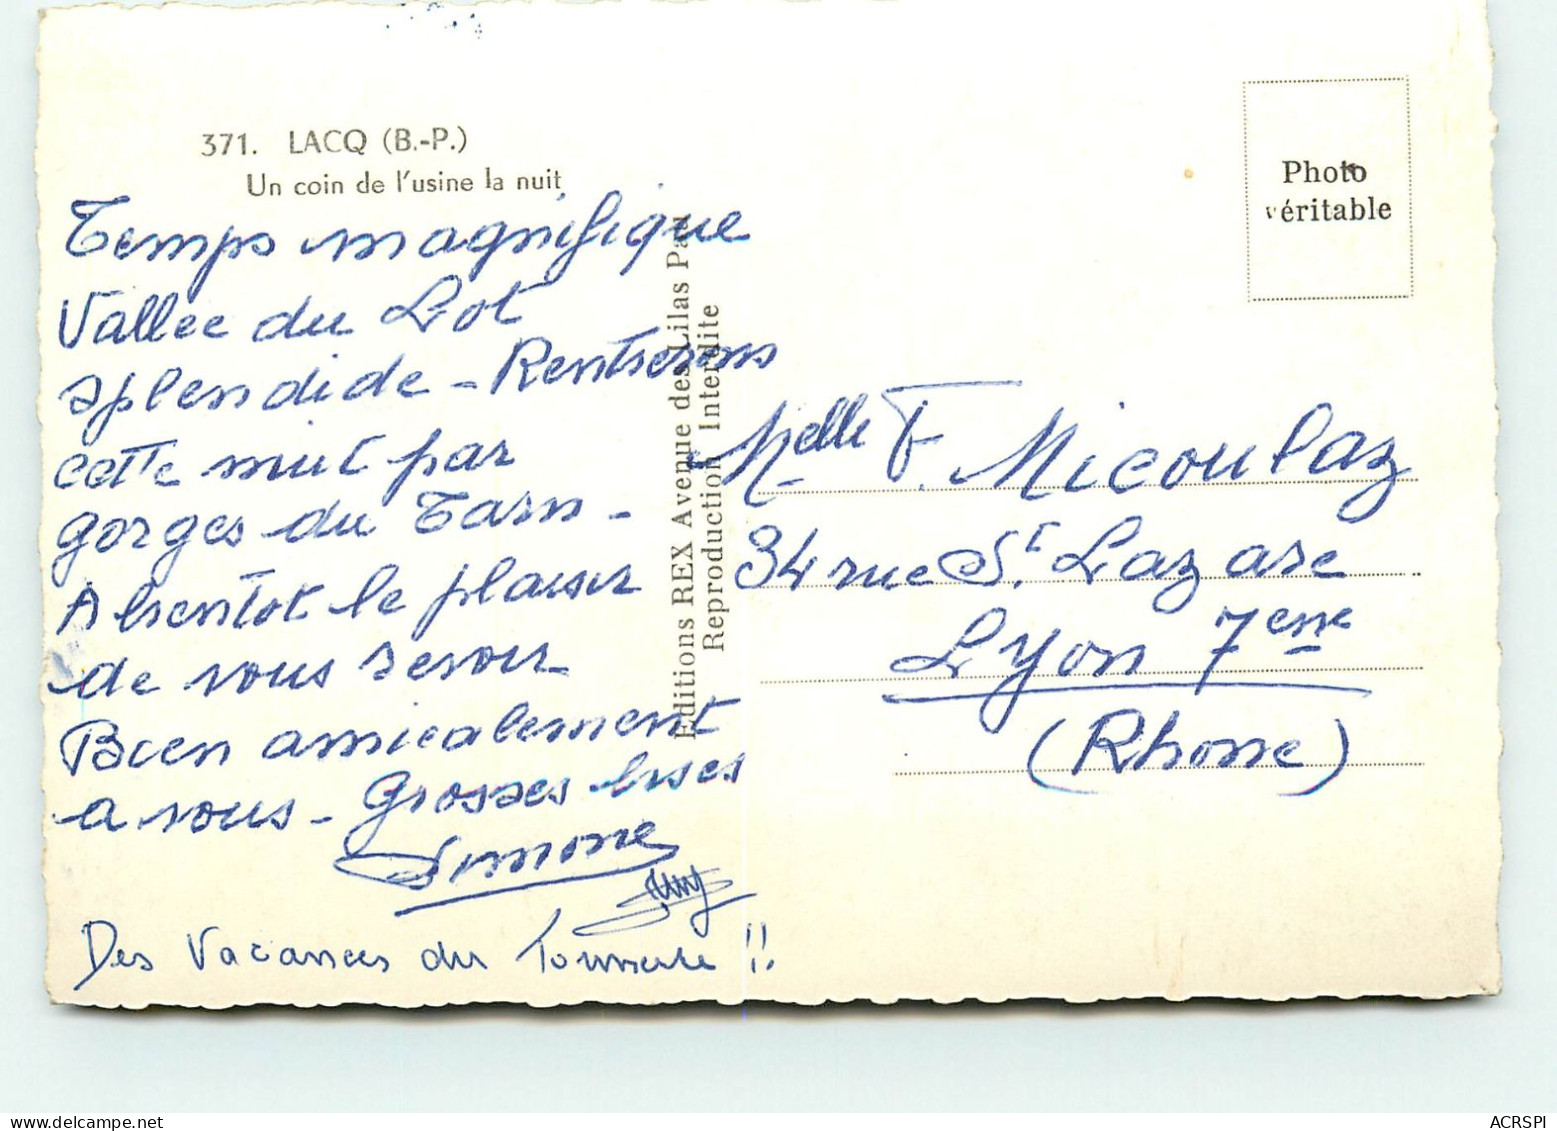 371. LACQ (B.-P.)
Un coin de l'usine la nuit
Temps magnifique
Vallee du Lot
splendide - Rentrerons
cette nuit par
gorges du Tarn -
A bientot le plaisir
de vous revoir
Bien amicalement
a vous - Grosses bises
Simone
Des Vacances du Tonnerre !!
Editions REX Avenue des Lilas Pau
Reproduction Interdite
Photo
véritable
Melle F. Micoulaz
34 rue St. Lazare
Lyon 7eme
(Rhone)
ACRSPI